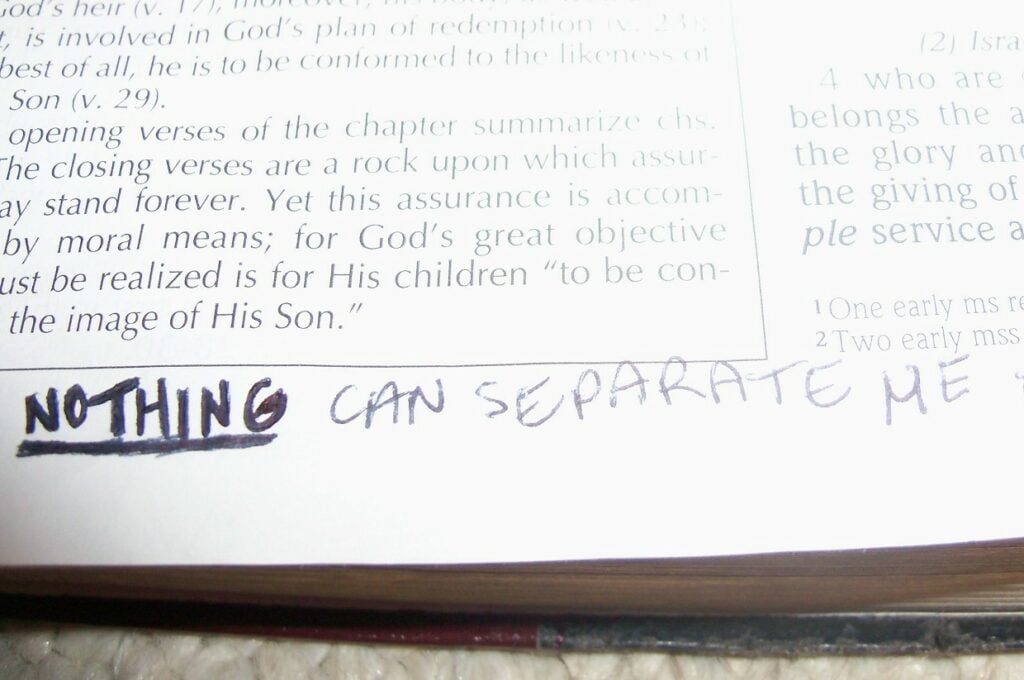 God's heir (v. 17), moreover, his body,
is involved in God's plan of redemption (v. 23);
best of all, he is to be conformed to the likeness of
Son (v. 29).
opening verses of the chapter summarize chs.
The closing verses are a rock upon which assur-
ay stand forever. Yet this assurance is accom-
by moral means; for God's great objective
ust be realized is for His children "to be con-
the image of His Son."
(2) Isra
4 who are
belongs the a
the glory and
the giving of
ple service a
1 One early ms re
2 Two early mss
NOTHING CAN SEPARATE ME